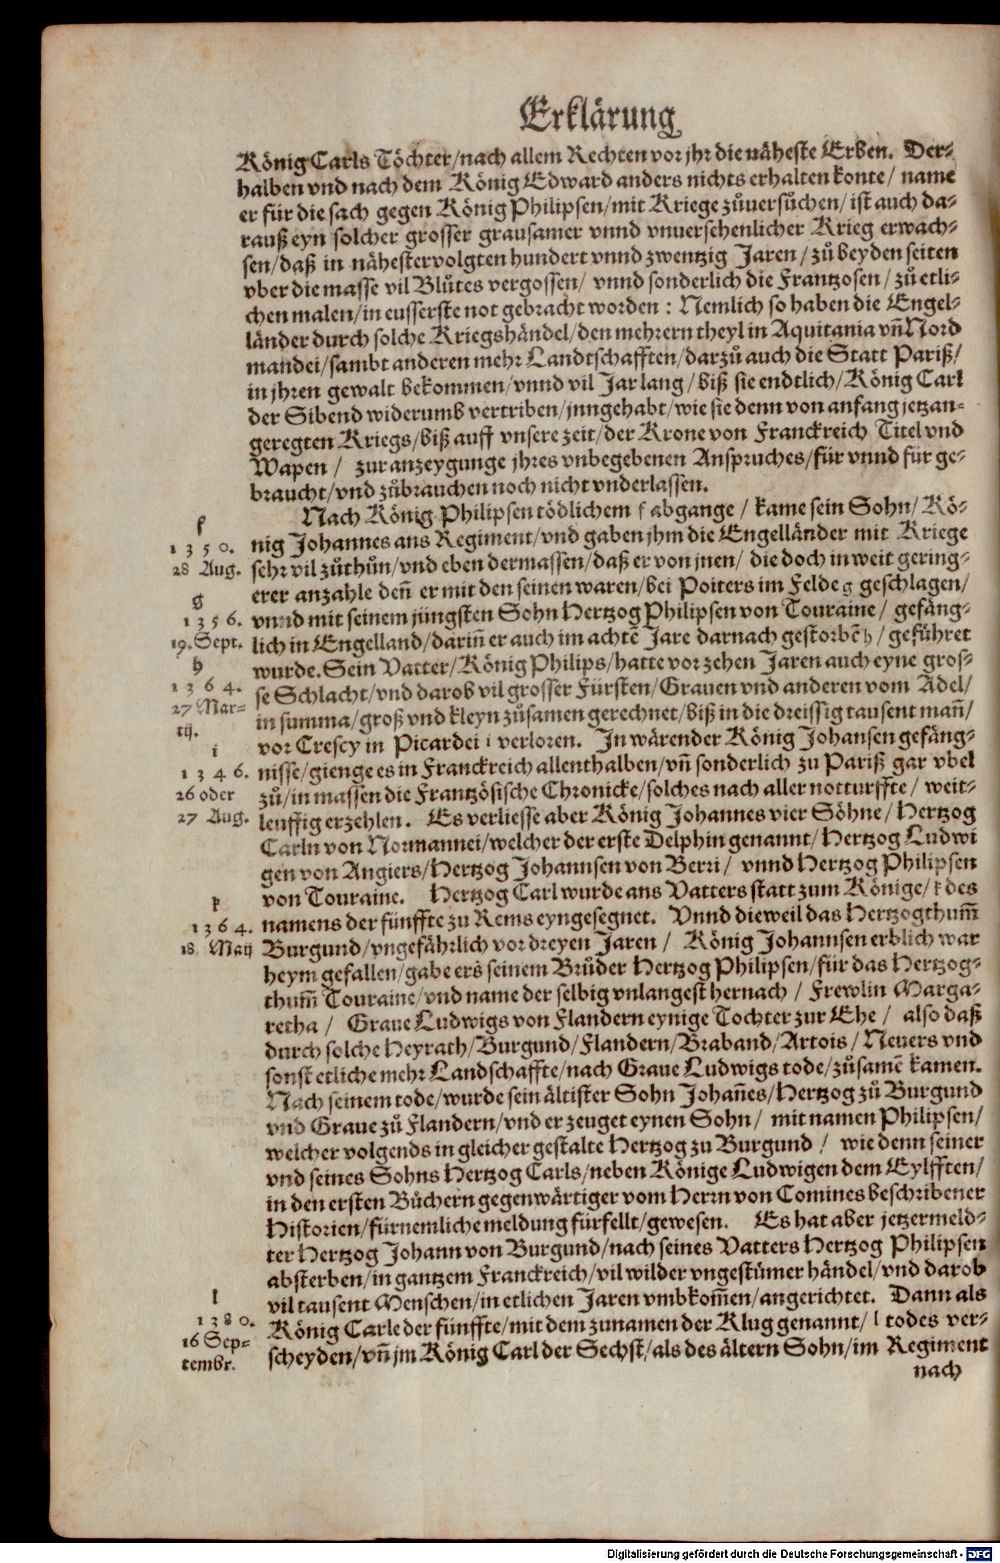 Erklärung
König Carls Töchter/nach allem Rechten vor jhr die näheste Erben. Der-
halben vnd nach dem König Edward anders nichts erhalten konte/ name
er für die sach gegen König Philipsen/mit Kriege zůuersůchen/ ist auch da-
rauß eyn solcher grosser grausamer vnnd vnuersehenlicher Krieg erwach-
sen/daß in nähestervolgten hundert vnnd zwentzig Jaren/zů beyden seiten
vber die masse vil Blůtes vergossen/ vnnd sonderlich die Frantzosen/zů etli-
chen malen/in eusserste not gebracht worden: Nemlich so haben die Engel-
länder durch solche Kriegshändel/den mehrern theyl in Aquitania vñ Nord
mandei/sambt anderen mehr Landtschafften/darzů auch die Statt Pariß/
in jhren gewalt bekommen/vnnd vil Jar lang/biß sie endtlich/König Carl
der Sibend widerumb vertriben/jnngehabt/wie sie denn von anfang jetzan-
geregten Kriegs/biß auff vnsere zeit/der Krone von Franckreich Titel vnd
Wapen/ zur anzeygunge jhres vnbegebenen Anspruches/für vnnd für ge-
braucht/vnd zůbrauchen noch nicht vnderlassen.
Nach König Philipsen tödlichem f abgange/ kame sein Sohn/Kö-
nig Johannes ans Regiment/vnd gaben jhm die Engelländer mit Kriege
sehr vil zůthůn/vnd eben dermassen/daß er von jnen/ die doch in weit gering-
erer anzahle deñ er mit den seinen waren/bei Poiters im Felde g geschlagen/
vnnd mit seinem jüngsten Sohn Hertzog Philipsen von Touraine/ gefäng-
lich in Engelland/dariñ er auch im achtē Jare darnach gestorbē h/geführet
wurde. Sein Vatter/König Philips/hatte vor zehen Jaren auch eyne gros-
se Schlacht/vnd darob vil grosser Fürsten/Grauen vnd anderen vom Adel/
in summa/groß vnd kleyn zůsamen gerechnet/biß in die dreissig tausent mañ/
vor Crescy in Picardei i verloren. In wärender König Johansen gefäng-
nisse/gienge es in Franckreich allenthalben/vñ sonderlich zu Pariß gar vbel
zů/in massen die Frantzösische Chronicke/solches nach aller notturffte/ weit-
leuffig erzehlen. Es verliesse aber König Johannes vier Söhne/Hertzog
Carln von Normannei/welcher der erste Delphin genannt/Hertzog Ludwi
gen von Angiers/Hertzog Johannsen von Berri/ vnnd Hertzog Philipsen
von Touraine. Hertzog Carl wurde ans Vatters statt zum Könige/k des
namens der fünffte zu Rems eyngesegnet. Vnnd dieweil das Hertzogthum̃
Burgund/vngefährlich vor dreyen Jaren/ König Johannsen erblich war
heym gefallen/gabe ers seinem Brůder Hertzog Philipsen/für das Hertzog-
thum̃ Touraine/vnd name der selbig vnlangest hernach/ Frewlin Marga-
retha/ Graue Ludwigs von Flandern eynige Tochter zur Ehe/ also daß
durch solche Heyrath/Burgund/Flandern/Braband/Artois/Neuers vnd
sonst etliche mehr Landschaffte/nach Graue Ludwigs tode/zůsamē kamen.
Nach seinem tode/wurde sein ältister Sohn Johañes/Hertzog zů Burgund
vnd Graue zů Flandern/vnd er zeuget eynen Sohn/ mit namen Philipsen/
welcher volgends in gleicher gestalte Hertzog zu Burgund/ wie denn seiner
vnd seines Sohns Hertzog Carls/neben Könige Ludwigen dem Eylfften/
in den ersten Bůchern gegenwärtiger vom Herrn von Comines beschribener
Historien/fürnemliche meldung fürfellt/gewesen. Es hat aber jetzermeld-
ter Hertzog Johann von Burgund/nach seines Vatters Hertzog Philipsen
absterben/in gantzem Franckreich/vil wilder vngestümer händel/vnd darob
vil tausent Menschen/in etlichen Jaren vmbkom̃en/angerichtet. Dann als
König Carle der fünffte/mit dem zunamen der Klug genannt/ l todes ver-
scheyden/vñ jm König Carl der Sechst/als des ältern Sohn/im Regiment
nach
f
1350.
28 Aug.
g
1356.
19. Sept.
h
1364.
27 Mar-
tij.
i
1346.
26 oder
27 Aug.
k
1364.
18 Maij
l
1380.
16 Sep-
tembr.
Digitalisierung gefördert durch die Deutsche Forschungsgemeinschaft - DFG